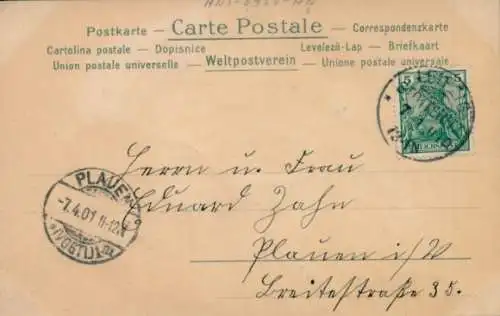 Postkarte — Carte Postale — Correspondenzkarte
Cartolina postale — Dopisnice Levelezö-Lap — Briefkaart
Union postale universelle — Weltpostverein — Unione postale universale
5 5
PLAUEN
-7.4.01 11-12N
*(VOGTL)1
Herrn u. Frau
Eduard Zahn
Plauen i/V
Breitestraße 35.